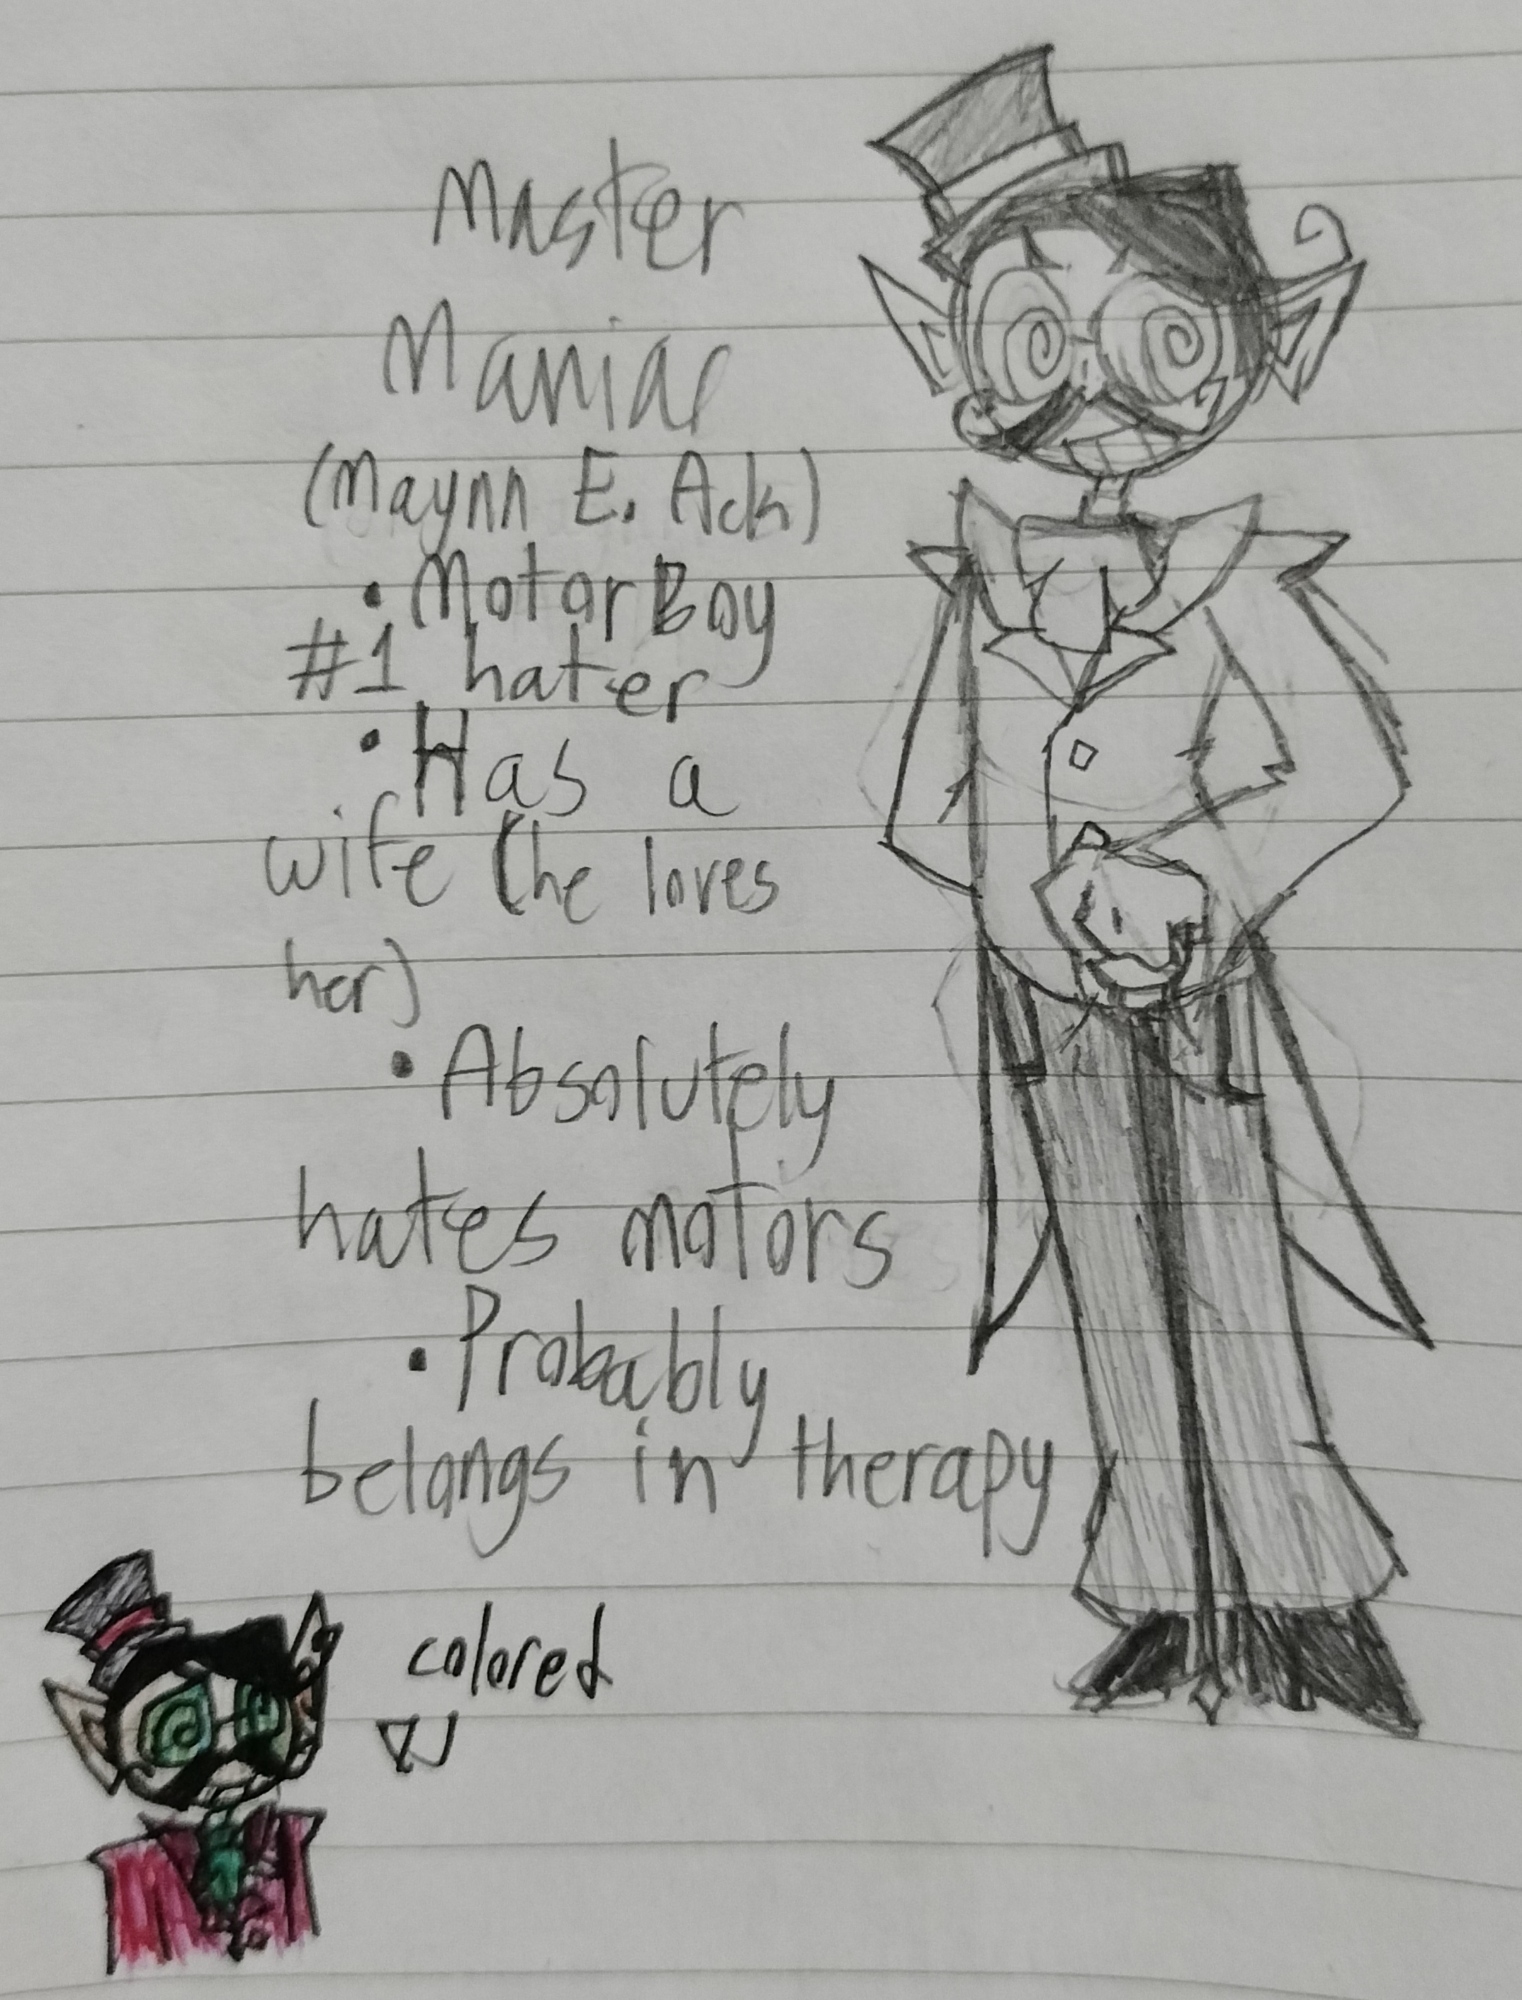 Master
Maniac
(Maynn E. Ack)
• MotorBoy
#1 hater
• Has a
wife (he loves
her)
• Absolutely
hates motors
• Probably
belongs in therapy
colored